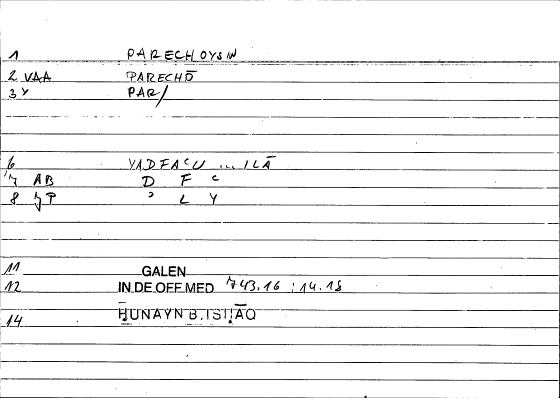 1 PARECHOYSIN
2 VAA PARECHŌ
3 Y PAR/
6 YADFACU ... ILĀ
7 AB D F C
8 JP ) L Y
11 GALEN
12 IN.DE.OFF.MED 743.16 ; 14.18
14 ḤUNAYN B.ISḤĀQ